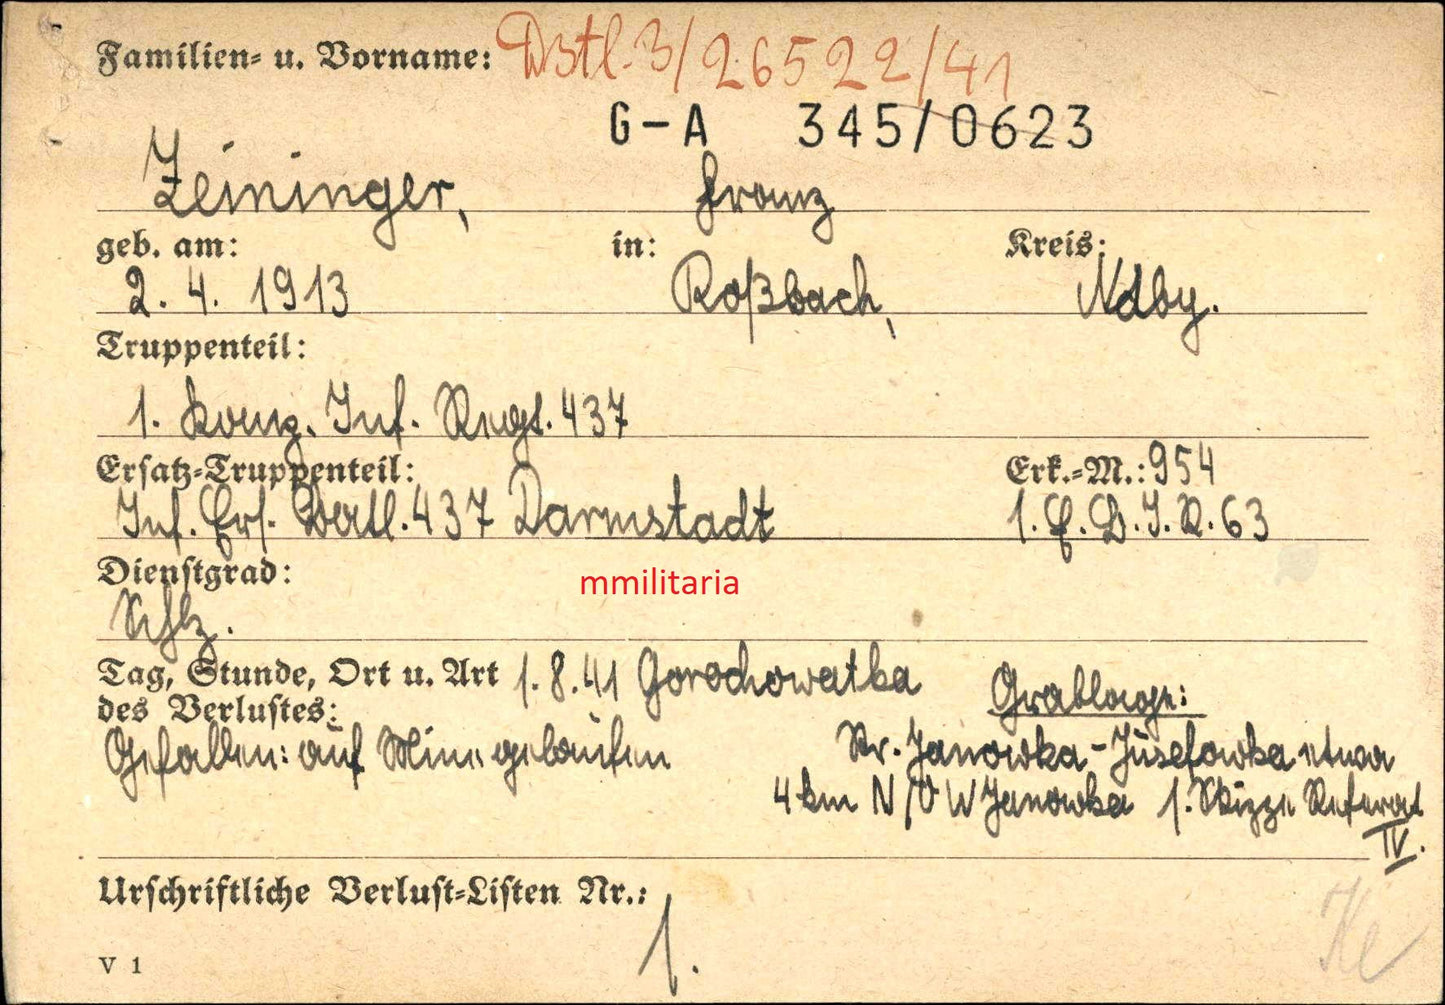 Familien- u. Vorname: Dstl. 3/26522/41
G-A 345/0623
Zeininger, Franz
geb. am: in: Kreis:
2. 4. 1913 Roßbach, Ndby.
Truppenteil:
1. Komp. Inf. Regt. 437
Ersatz-Truppenteil: Erk.-M.: 954
Inf. Ers. Batl. 437 Darmstadt 1. E. B. I. R. 63
Dienstgrad:
mmilitaria
Schtz.
Tag, Stunde, Ort u. Art 1.8.41 Gorochowatka Grablage:
des Verlustes:
Gefallen: auf Mine gelaufen Str. Janowka-Jusefowka etwa
4 km N/O W Janowka s. Skizze Referat
IV.
Urschriftliche Verlust-Listen Nr.: 1.
V 1